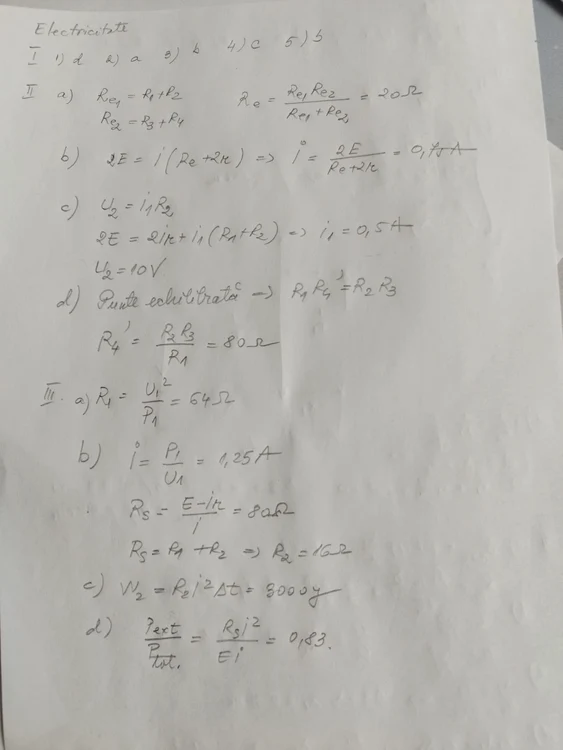 Electricitate
I 1) d 2) a 3) b 4) c 5) b
II a) Re1 = R1 + R2 Re = Re1 Re2 / Re1 + Re2 = 20Ω
Re2 = R3 + R4
b) 2E = i (Re + 2r) => i = 2E / Re + 2r = 0,75A
c) U2 = i1 R2
2E = 2ir + i1 (R1 + R2) => i1 = 0,5A
U2 = 10V
d) Punte echilibrată => R1 R4' = R2 R3
R4' = R2 R3 / R1 = 80Ω
III. a) R1 = U1² / P1 = 64Ω
b) i = P1 / U1 = 1,25A
Rs = E - ir / i = 80Ω
Rs = R1 + R2 => R2 = 16Ω
c) W2 = R2 i² Δt = 3000J
d) Pext / Ptot. = Rs i² / Ei = 0,83.